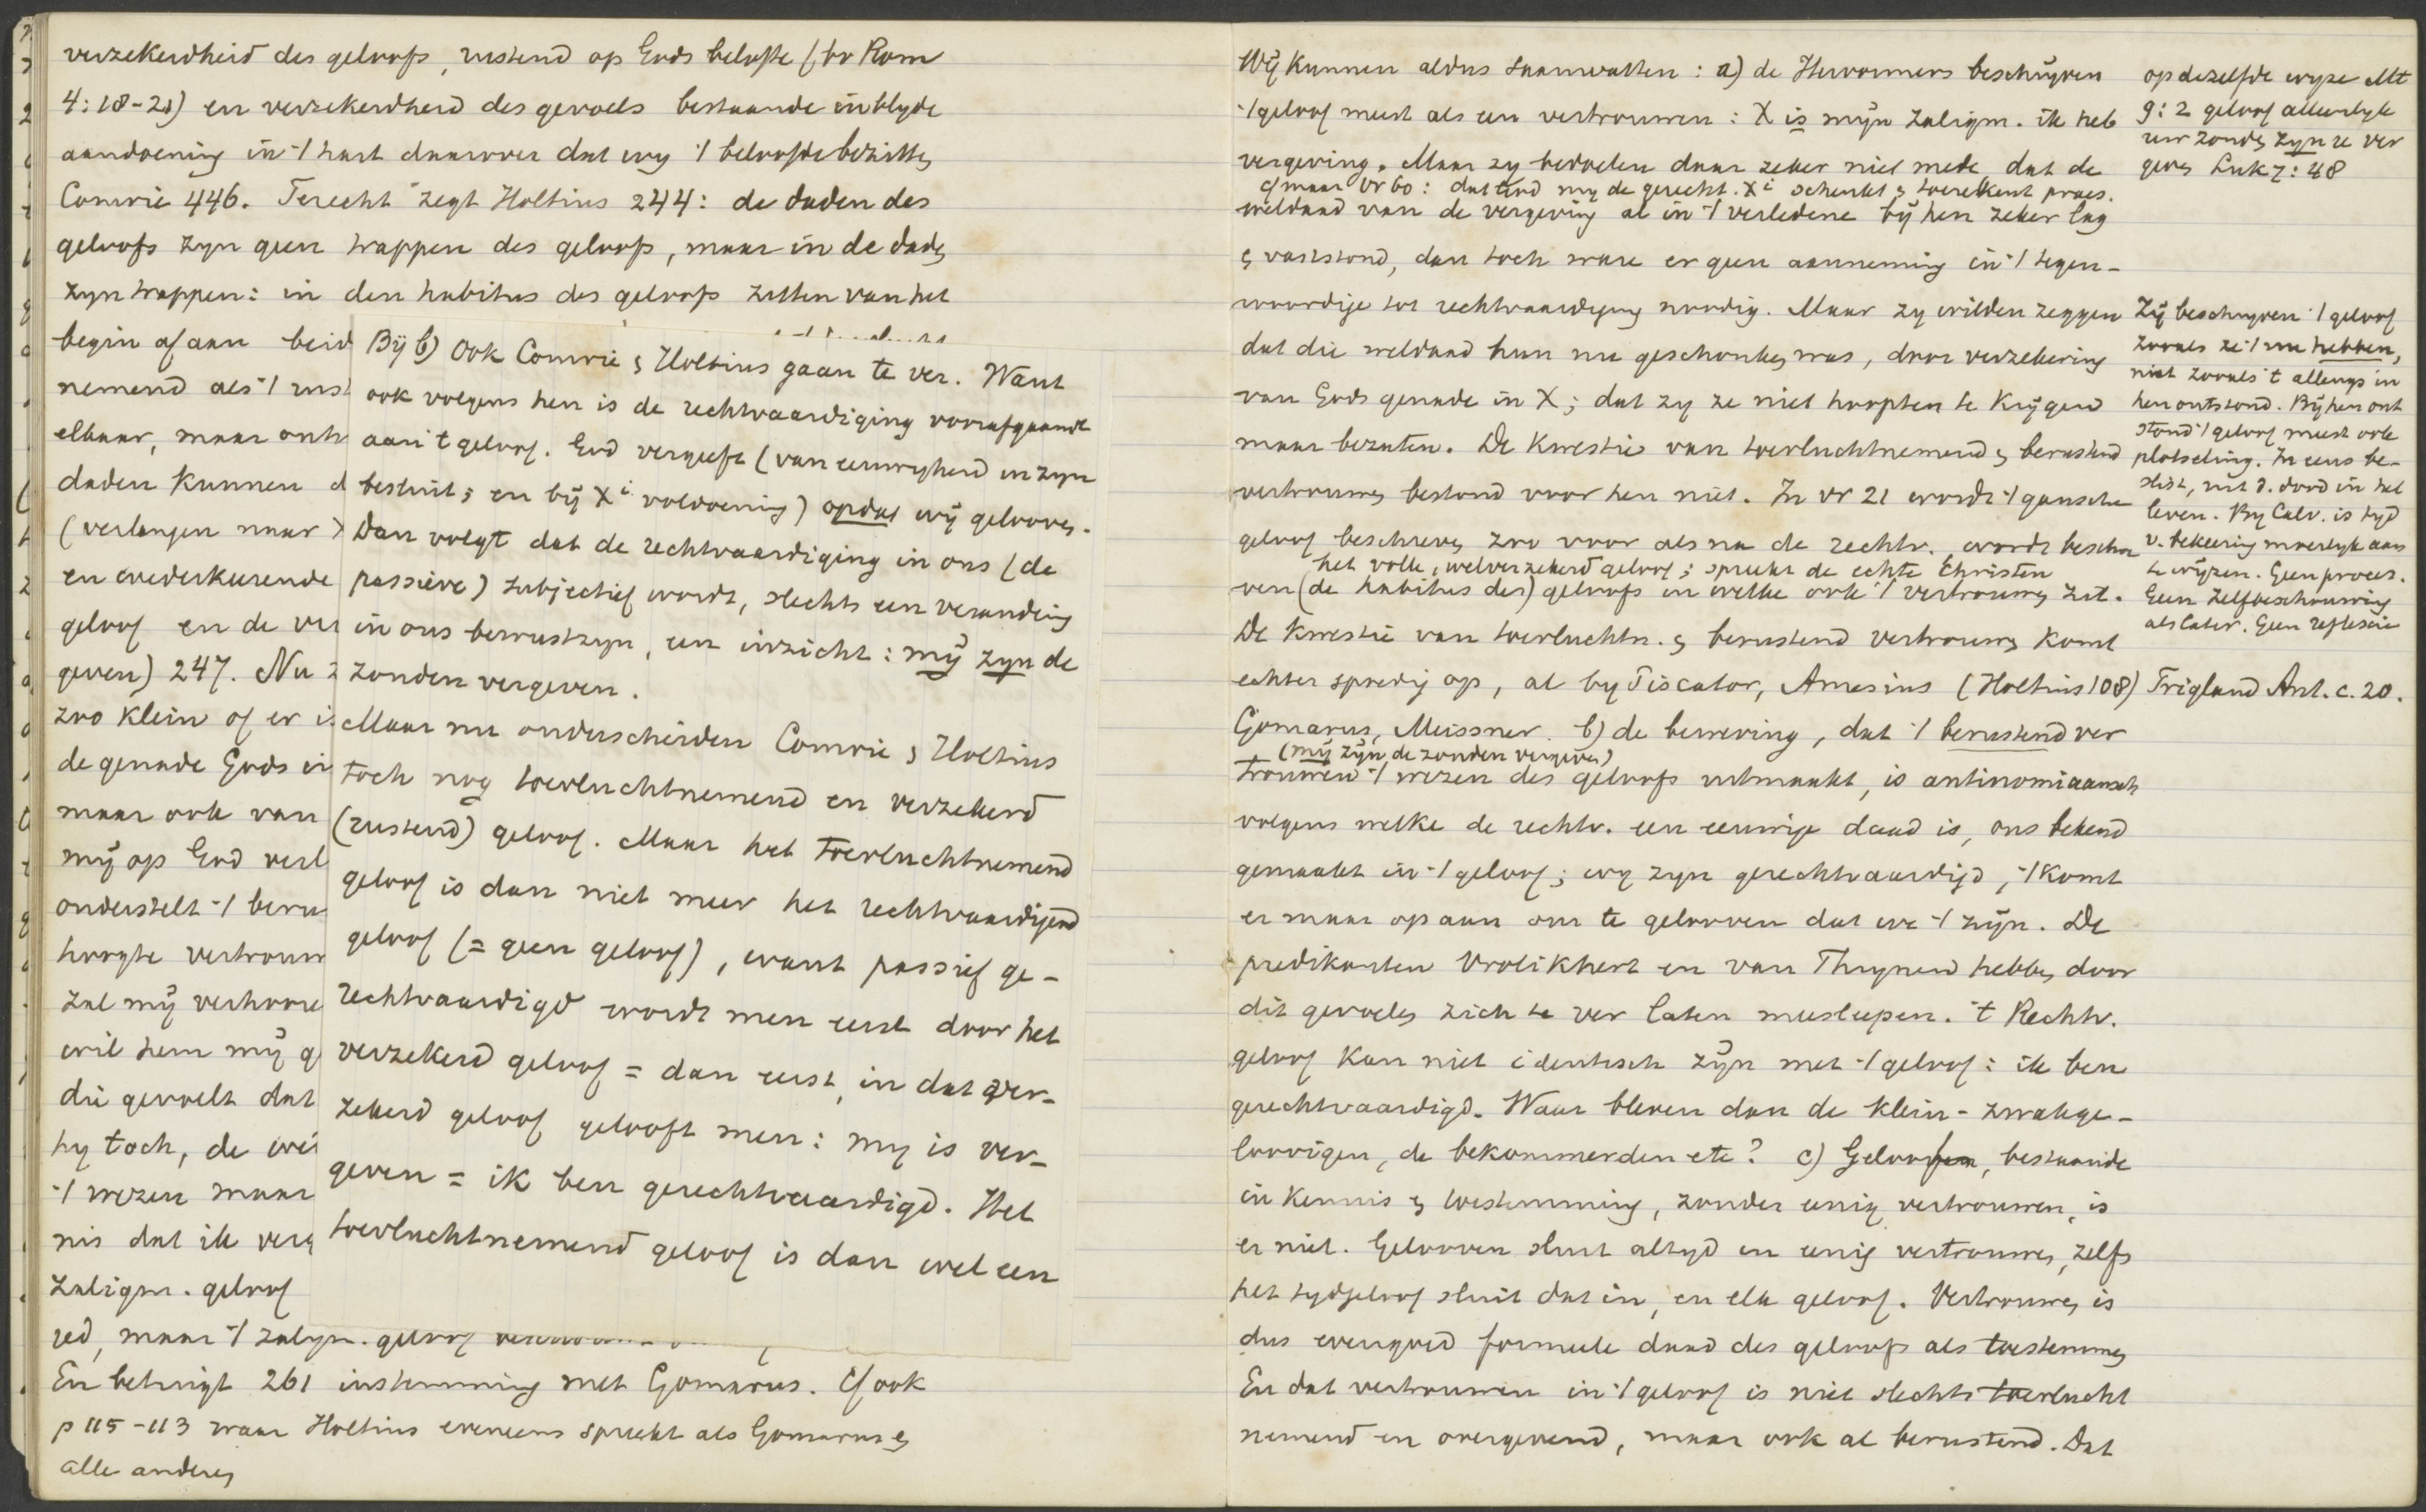 verzekerdheid des geloofs, rustend op Gods belofte (br Rom
4:18-21) en verzekerdheid des gevoels bestaande in blyde
aandoening in 't hart daarover dat wy 't beloofde bezitten
Comrie 446. Terecht zegt Holtius 244: de daden des
geloofs zyn geen trappen des geloofs, maar in de daden
zyn trappen: in den habitus des geloofs zitten van het
begin af aan beid
nemend als 't rust
elkaar, maar onts
daden kunnen d
(verlangen naar
en wederkeerende
geloof en de ver
geven) 247. Nu z
zoo klein of er is
de genade Gods in
maar ook van
mij op God verl
onderstelt 't beru
hoogte vertrouw
zal mij verhoore
wil hem mij g
die gevoelt dat
hy toch, de wei
't wezen maar
nis dat ik verg
zaligm. geloof
red, maar 't zaligm. geloof
En betuigt 261 instemming met Gomarus. Cf ook
p 115-113 waar Holtius eveneens spreekt als Gomarus en
alle anderen
Bij b) Ook Comrie & Holtius gaan te ver. Want
ook volgens hen is de rechtvaardiging voorafgaande
aan 't geloof. God vergeeft (van eeuwigheid in zyn
besluit; en bij Xi voldoening) opdat wij gelooven.
Dan volgt dat de rechtvaardiging in ons (de
passieve) subjectief wordt, slechts een verandering
in ons bewustzyn, een inzicht: mij zyn de
zonden vergeven.
Maar nu onderscheiden Comrie & Holtius
toch nog toevluchtnemend en verzekerd
(rustend) geloof. Maar het toevluchtnemend
geloof is dan niet meer het rechtvaardigend
geloof (= geen geloof), want passief ge-
rechtvaardigd wordt men eerst door het
verzekerd geloof = dan eerst, in dat ver-
zekerd geloof gelooft men: my is ver-
geven = ik ben gerechtvaardigd. Het
toevluchtnemend geloof is dan wel een
Wij kunnen aldus saamvatten: a) de Hervormers beschrijven
't geloof meest als een vertrouwen: X is mijn zaligm. ik heb
vergeving. Maar zy bedoelen daar zeker niet mede, dat de
cf maar vr 60: dat God my de gerecht. Xi schenkt & toerekent praes.
weldaad van de vergeving al in 't verledene bij hen zeker lag
& vaststond, dan toch ware er geen aanneming in 't tegen-
woordige tot rechtvaardiging noodig. Maar zy wilden zeggen
dat die weldaad hun nu geschonken was, door verzekering
van Gods genade in X; dat zy ze niet hoopten te krijgen
maar bezaten. De kwestie van toevluchtnemend & berustend
vertrouwen bestond voor hen niet. In vr 21 wordt 't gansche
geloof beschreven zoo voor als na de rechtv., wordt beschre
het volle, welverzekerd geloof; spreekt de echte Christen
ven (de habitus des) geloofs in welke ook 't vertrouwen zit.
De kwestie van toevluchtn. & berustend vertrouwen komt
echter spoedig op, al by Piscator, Amesius (Holtius 108) Trigland Ant. c. 20.
Gomarus, Meissner. b) de bewering, dat 't berustend ver
(mij zijn de zonden vergeven)
trouwen 't wezen des geloofs uitmaakt, is antinomiaansch
volgens welke de rechtv. een eeuwige daad is, ons bekend
gemaakt in 't geloof; wy zyn gerechtvaardigd, 't komt
er maar op aan om te gelooven dat we 't zijn. De
predikanten Vrolikhert en van Thuynen hebben door
dit gevoelen zich te ver laten meesleepen. 't Rechtv.
geloof kan niet identisch zijn met 't geloof: ik ben
gerechtvaardigd. Waar bleven dan de klein- zwakge-
loovigen, de bekommerden etc? c) Geloof, bestaande
in kennis & toestemming, zonder eenig vertrouwen, is
er niet. Gelooven sluit altyd in eenig vertrouwen, zelfs
het tydgeloof sluit dat in, en elk geloof. Vertrouwen is
dus evengoed formeele daad des geloofs als toestemmen
En dat vertrouwen in 't geloof is niet slechts toevlucht
nemend en overgevend, maar ook al berustend. Dat
op dezelfde wyze Mt
9:2 geloof allenlyk
uw zonden zyn u ver
geven Luk 7:48
Zij beschryven 't geloof
zooals ze 't nu hebben,
niet zooals 't allengs in
hen ontstond. Bij hen ont
stond 't geloof meest ook
plotseling. In eens be-
slist, uit d. dood in het
leven. By Calv. is tyd
v. bekeering moeilyk aan
te wijzen. Geen proces.
Geen zelfbeschouwing
als later. Geen reflexie